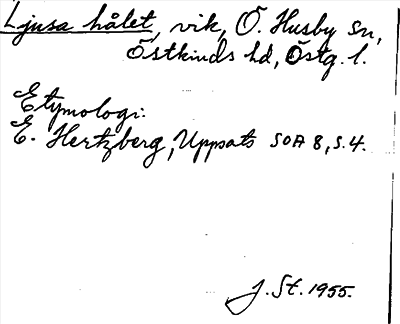 Ljusa hålet, vik, Ö. Husby sn,
Östkinds hd, Östg. l.
Etymologi:
E. Hertzberg, Uppsats SOA 8, s. 4.
J. St. 1955.